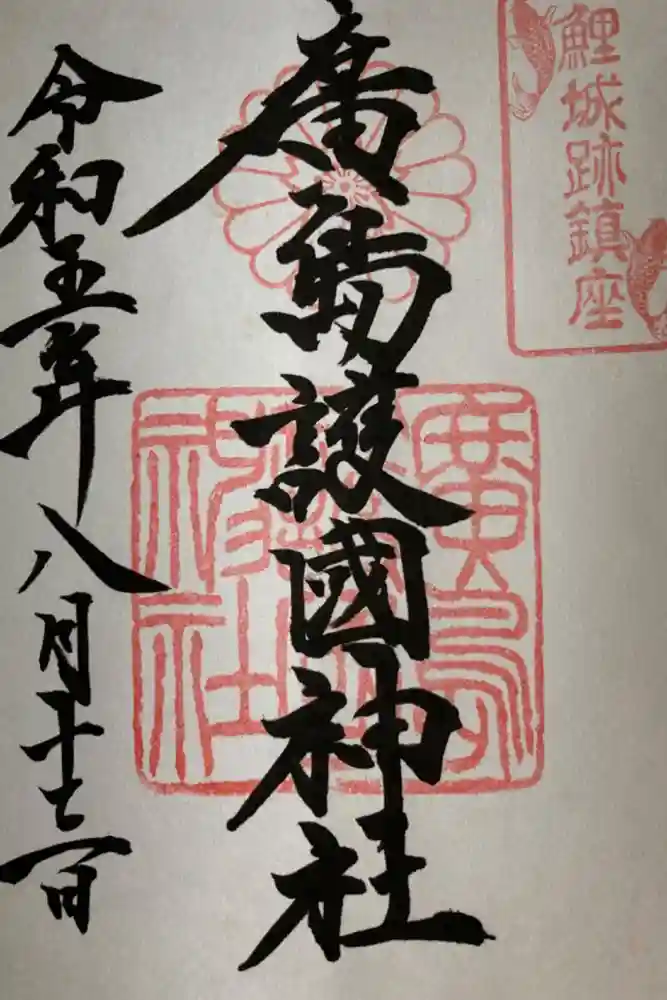 鯉城跡鎮座
廣島護國神社
廣島護國神社
令和五年八月十七日